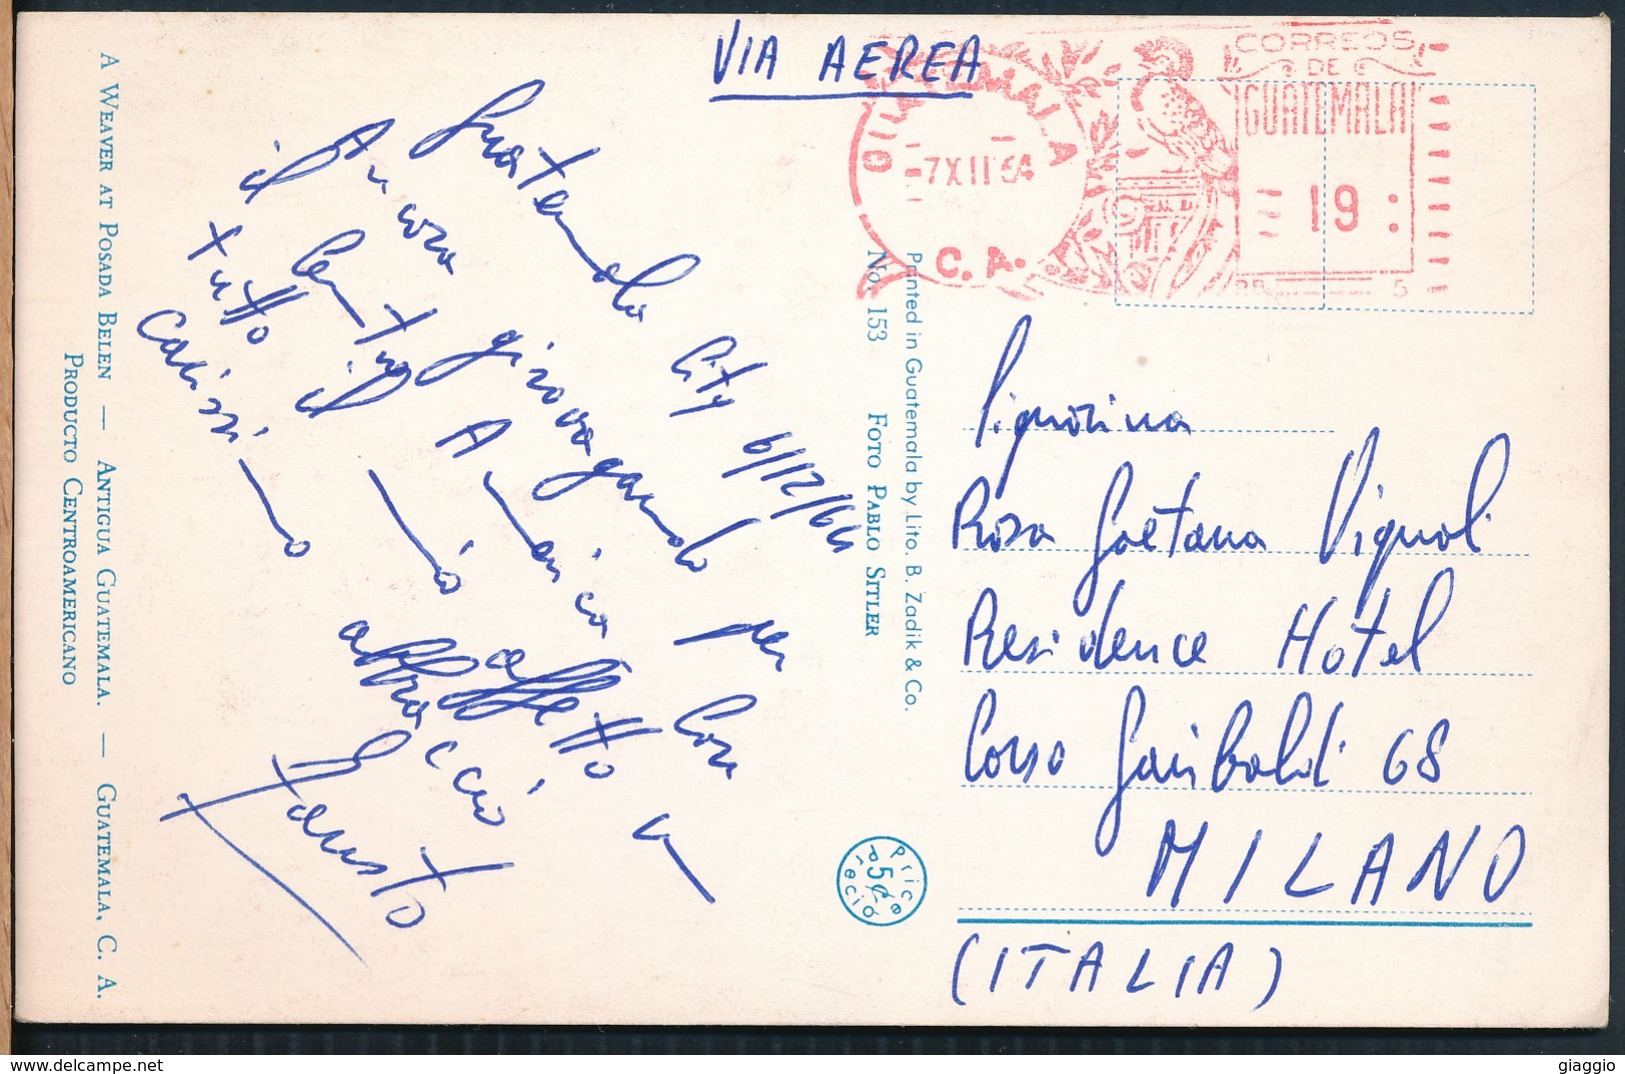 VIA AEREA
CORREOS
DE
GUATEMALA
19
7 XII 64
C. A.
PB 5
Guatemala City 6/12/64
Ancora girovagando per
il Centro America con
tutto il mio affetto un
carissimo abbraccio
Fausto
A WEAVER AT POSADA BELEN — ANTIGUA GUATEMALA. — GUATEMALA, C. A.
PRODUCTO CENTROAMERICANO
No. 153 FOTO PABLO SITLER
Printed in Guatemala by Lito. B. Zadik & Co.
Price
5¢
Precio
Signorina
Rosa Gaetana Vignoli
Residence Hotel
Corso Garibaldi 68
MILANO
(ITALIA)
giaggio